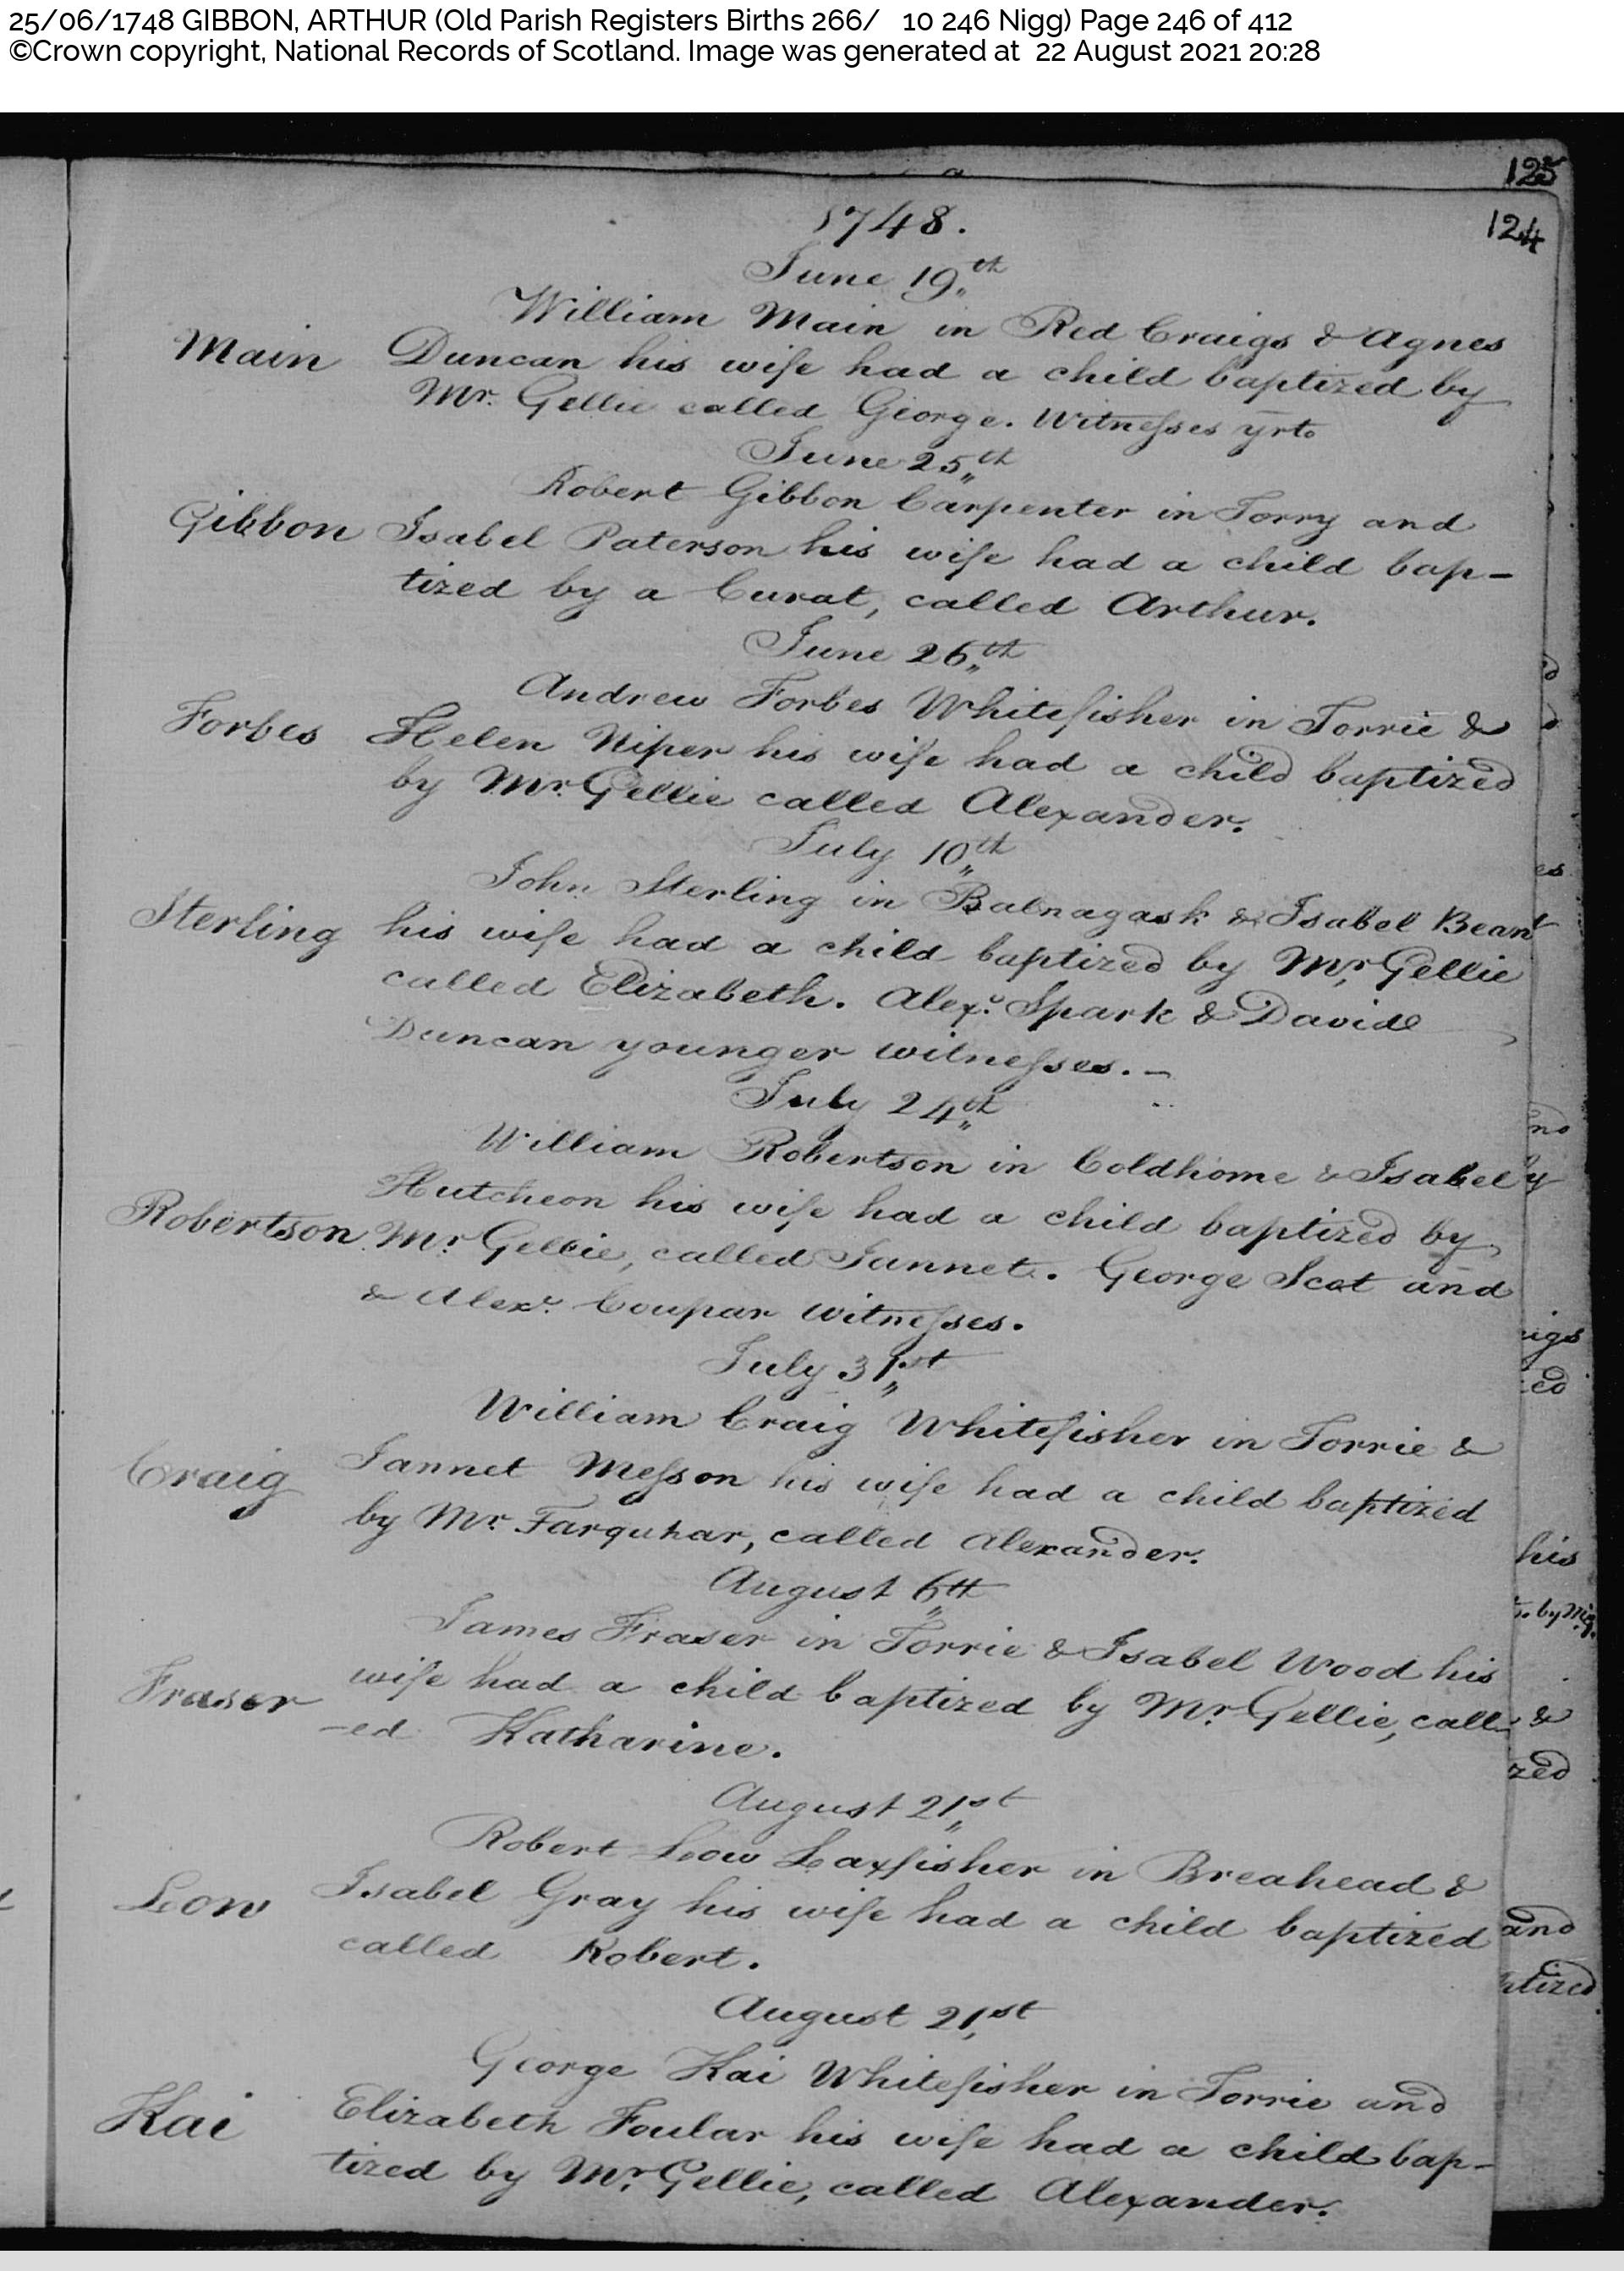 25/06/1748 GIBBON, ARTHUR (Old Parish Registers Births 266/ 10 246 Nigg) Page 246 of 412
©Crown copyright, National Records of Scotland. Image was generated at 22 August 2021 20:28
125
1748.
124
June 19th
William Main in Red Craigs & Agnes
Main Duncan his wife had a child baptized by
Mr. Gellie called George. Witnesses yrto
June 25th
Robert Gibbon Carpenter in Torry and
Gibbon Isabel Paterson his wife had a child bap-
tized by a Curat, called Arthur.
June 26th
Andrew Forbes Whitefisher in Torrie &
Forbes Helen Niper his wife had a child baptized
by Mr. Gellie called Alexander.
July 10th
John Sterling in Balnagask & Isabel Beant
Sterling his wife had a child baptized by Mr. Gellie
called Elizabeth. Alexr. Spark & David
Duncan younger witnesses. -
July 24th
William Robertson in Coldhome & Isabel
Hutcheon his wife had a child baptized by
Robertson Mr. Gellie, called Jannet. George Scot and
& Alexr. Coupar witnesses.
July 31st
William Craig Whitefisher in Torrie &
Craig Jannet Messon his wife had a child baptized
by Mr. Farquhar, called Alexander.
August 6th
James Fraser in Torrie & Isabel Wood his
Fraser wife had a child baptized by Mr. Gellie, call-
-ed Katharine.
August 21st
Robert Low Laxfisher in Breahead &
Low Isabel Gray his wife had a child baptized
called Robert.
August 21st
George Kai Whitefisher in Torrie and
Kai Elizabeth Foular his wife had a child bap-
tized by Mr. Gellie, called Alexander.